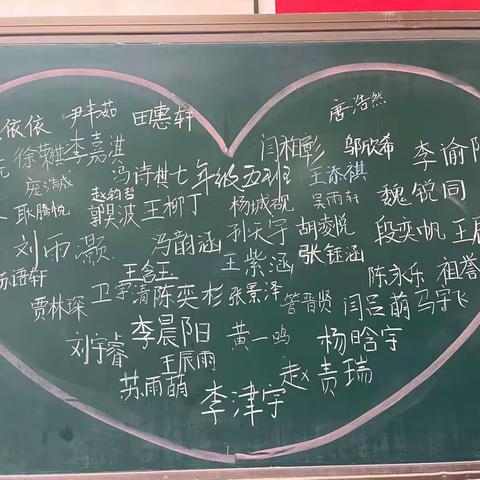 依依
尹丰茹
田惠轩
唐浩然
徐荣祺
李嘉淇
闫相彰
邹欣希
李谕阳
庞浩诚
冯诗棋
七年级五班
王添祺
耿腾悦
赵钧哲
郭昊波
王柳丁
杨城砚
吴雨轩
魏锐同
刘雨灏
冯韵涵
孙天宇
胡凌悦
段奕帆
王辰
苏语轩
王含玉
王紫涵
张钰涵
陈永乐
祖誉
贾林琛
卫宇清
陈奕杉
张景泽
管晋贤
闫吕萌
马宇飞
刘宇睿
李晨阳
黄一鸣
杨晗宇
王辰雨
苏雨萌
李津宇
赵贵瑞